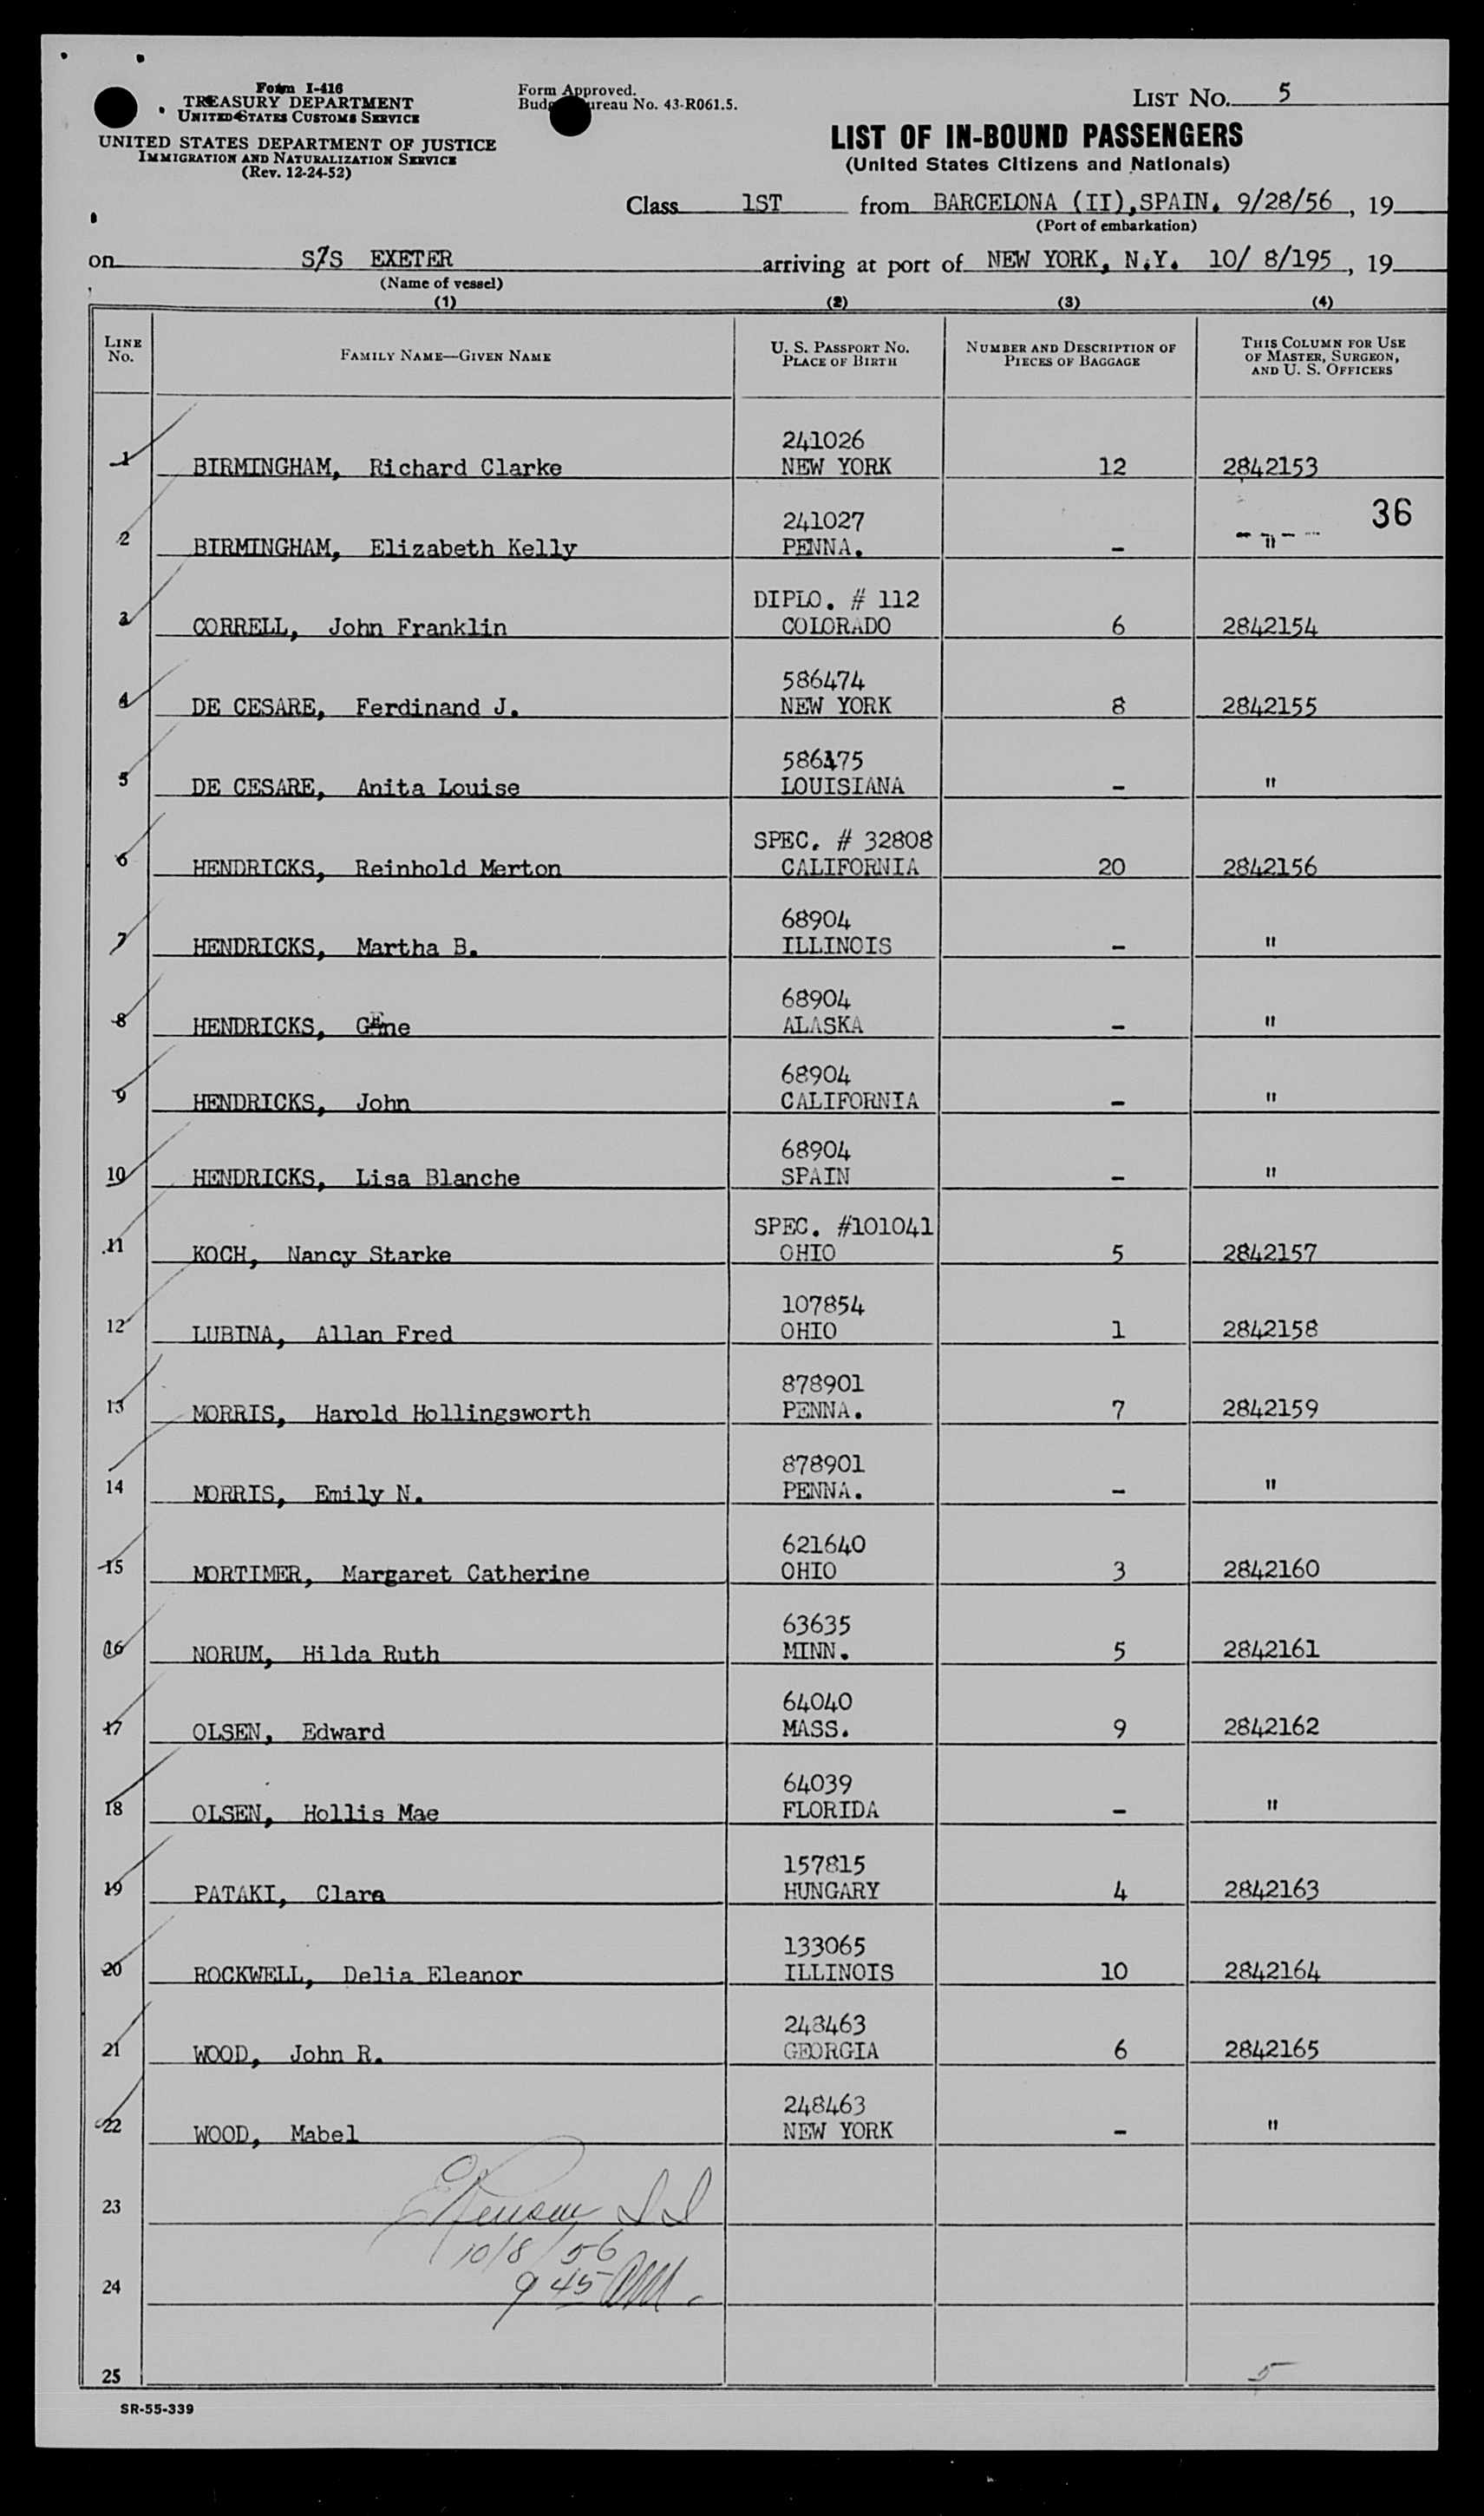 Form I-416
TREASURY DEPARTMENT
UNITED STATES CUSTOMS SERVICE
UNITED STATES DEPARTMENT OF JUSTICE
IMMIGRATION AND NATURALIZATION SERVICE
(Rev. 12-24-52)
Form Approved.
Budget Bureau No. 43-R061.5.
LIST NO. 5
LIST OF IN-BOUND PASSENGERS
(United States Citizens and Nationals)
Class 1ST from BARCELONA (II), SPAIN. 9/28/56, 19
(Port of embarkation)
on S/S EXETER arriving at port of NEW YORK, N.Y. 10/ 8/195, 19
(Name of vessel)
(1) (2) (3) (4)
LINE NO. FAMILY NAME—GIVEN NAME U. S. PASSPORT NO. PLACE OF BIRTH NUMBER AND DESCRIPTION OF PIECES OF BAGGAGE THIS COLUMN FOR USE OF MASTER, SURGEON, AND U. S. OFFICERS
241026
1 BIRMINGHAM, Richard Clarke NEW YORK 12 2842153
36
241027
2 BIRMINGHAM, Elizabeth Kelly PENNA. - - " -
DIPLO. # 112
3 CORRELL, John Franklin COLORADO 6 2842154
586474
4 DE CESARE, Ferdinand J. NEW YORK 8 2842155
586475
5 DE CESARE, Anita Louise LOUISIANA - "
SPEC. # 32808
6 HENDRICKS, Reinhold Merton CALIFORNIA 20 2842156
68904
7 HENDRICKS, Martha B. ILLINOIS - "
68904
8 HENDRICKS, Gene ALASKA - "
68904
9 HENDRICKS, John CALIFORNIA - "
68904
10 HENDRICKS, Lisa Blanche SPAIN - "
SPEC. #101041
11 KOCH, Nancy Starke OHIO 5 2842157
107854
12 LUBINA, Allan Fred OHIO 1 2842158
878901
13 MORRIS, Harold Hollingsworth PENNA. 7 2842159
878901
14 MORRIS, Emily N. PENNA. - "
621640
15 MORTIMER, Margaret Catherine OHIO 3 2842160
63635
16 NORUM, Hilda Ruth MINN. 5 2842161
64040
17 OLSEN, Edward MASS. 9 2842162
64039
18 OLSEN, Hollis Mae FLORIDA - "
157815
19 PATAKI, Clara HUNGARY 4 2842163
133065
20 ROCKWELL, Delia Eleanor ILLINOIS 10 2842164
248463
21 WOOD, John R. GEORGIA 6 2842165
248463
22 WOOD, Mabel NEW YORK - "
23
10/8/56
24 9 45 AM.
25 5
SR-55-339